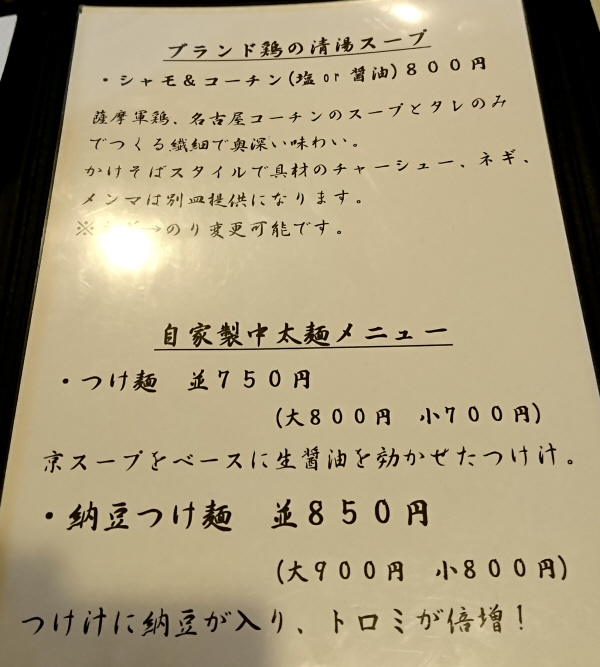 ブランド鶏の清湯スープ
・シャモ&コーチン(塩 or 醤油)８００円
薩摩軍鶏、名古屋コーチンのスープとタレのみ
でつくる繊細で奥深い味わい。
かけそばスタイルで具材のチャーシュー、ネギ、
メンマは別皿提供になります。
※→のり変更可能です。
自家製中太麺メニュー
・つけ麺　並７５０円
(大８００円　小７００円)
京スープをベースに生醤油を効かせたつけ汁。
・納豆つけ麺　並８５０円
(大９００円　小８００円)
つけ汁に納豆が入り、トロミが倍増！